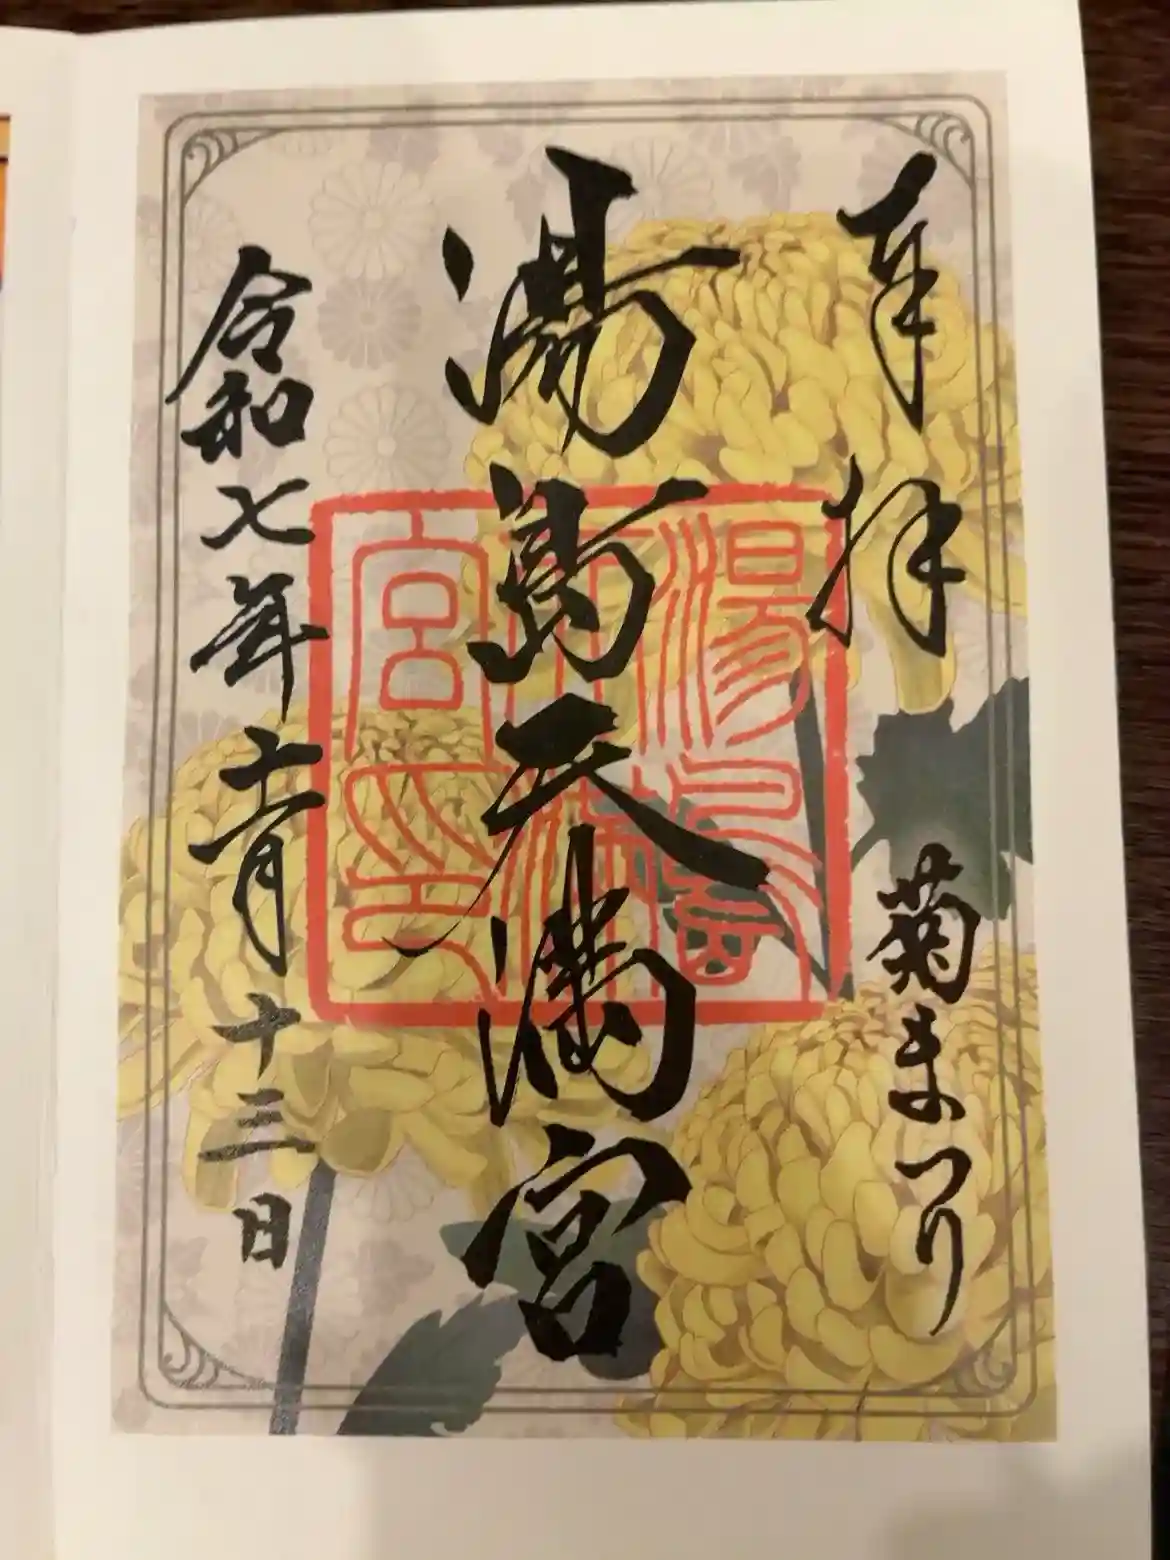 奉拝
菊まつり
湯島天満宮
令和七年十一月十三日
湯島
天満
宮印